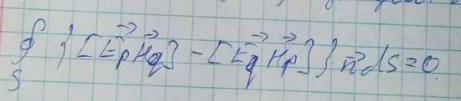 ∮_S {[E⃗_p H⃗_q] - [E⃗_q H⃗_p]} n⃗ dS = 0.